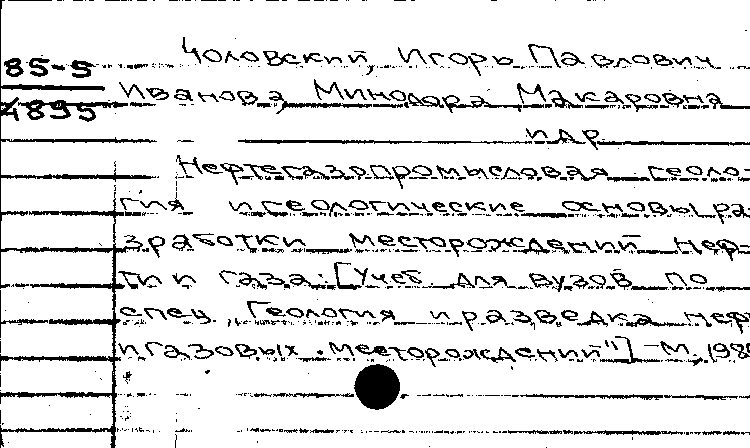 Чоловский, Игорь Павлович
85-5
Иванова, Минодора Макаровна
4895
и др
Нефтегазопромысловая геоло-
гия и геологические основы ра-
зработки месторождений неф-
ти и газа: [Учеб для вузов по
спец „Геология и разведка неф
и газовых месторождений"] - М, 198